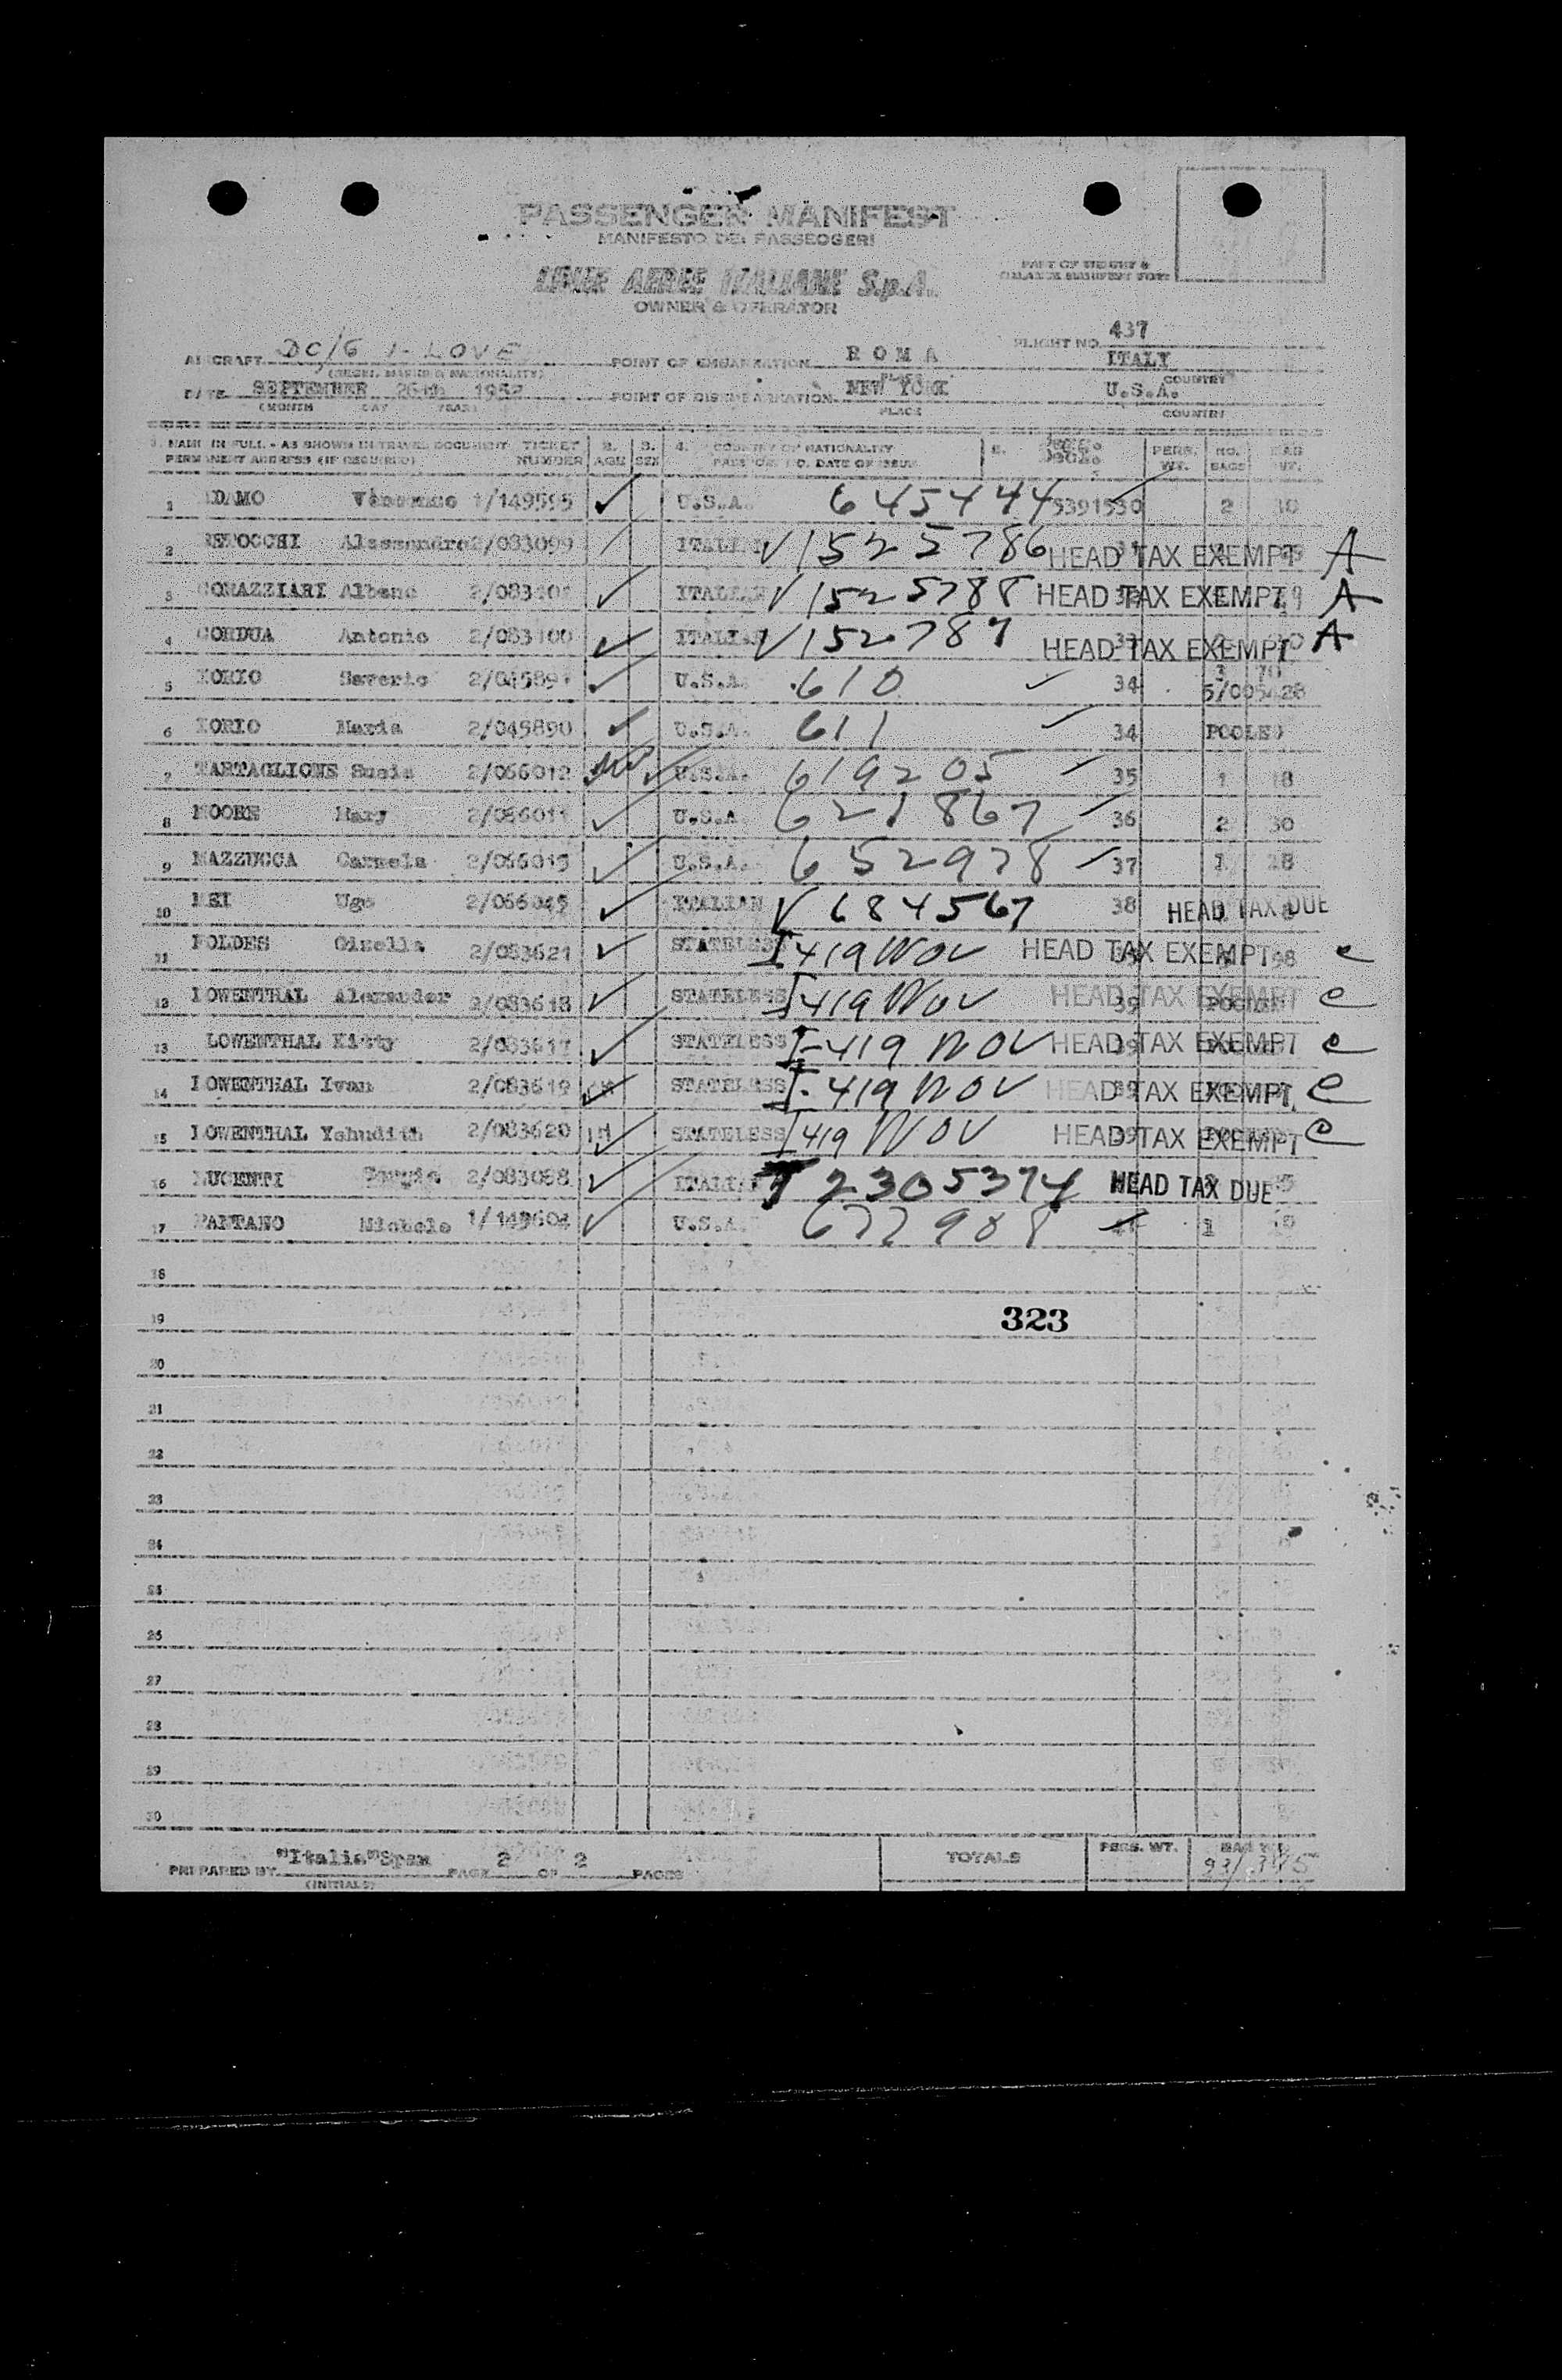 PASSENGER MANIFEST
MANIFESTO DEI PASSEGGERI
LINEE AEREE ITALIANE S.p.A.
OWNER & OPERATOR
PART OF WEIGHT &
BALANCE MANIFEST
AIRCRAFT DC/6 I-LOVE POINT OF EMBARKATION ROMA FLIGHT NO. 437
ITALY
PLACE COUNTRY
DATE SEPTEMBER 26th 1952 POINT OF DISEMBARKATION NEW YORK U.S.A.
(MONTH DAY YEAR) PLACE COUNTRY
1. NAME IN FULL - AS SHOWN IN TRAVEL DOCUMENT TICKET 2. 3. 4. COUNTRY OF NATIONALITY 5. PERS. NO. BAG
PERMANENT ADDRESS (IF REQUIRED) NUMBER AGE SEX PASSPORT NO. DATE OF ISSUE WT. BAGS WT.
1 ADAMO 1/149595 U.S.A. 645444 5391530 2 30
2 Alessandro 2/083099 ITALIAN V 1525786 HEAD TAX EXEMPT A
3 GORAZZIARI Albano ITALIAN V 1525788 HEAD TAX EXEMPT A
4 CORDUA Antonio 2/083100 ITALIAN V 152787 HEAD TAX EXEMPT A
5 Saverio U.S.A. 610 34 3 70
5/005428
6 Maria 2/045890 U.S.A. 611 34 POOLED
7 TARTAGLIONE Susie 2/066012 U.S.A. 619205 35 1 18
8 MOORE Mary 2/066011 U.S.A. 621867 36 2 30
9 MAZZUCCA Carmela 2/066015 U.S.A. 652978 37 1 18
10 MEI Ugo 2/066045 ITALIAN V 684567 38 HEAD TAX DUE
11 FOLDES Gisella 2/083621 STATELESS I 419 NOV HEAD TAX EXEMPT 98 e
12 LOWENTHAL Alexander 2/083618 STATELESS I 419 NOV HEAD TAX EXEMPT 39 POOLED e
13 LOWENTHAL Kitty 2/083617 STATELESS I-419 NOV HEAD TAX EXEMPT 39 e
14 LOWENTHAL Ivan 2/083619 STATELESS I-419 NOV HEAD TAX EXEMPT 39 e
15 LOWENTHAL Yehudith 2/083620 STATELESS I 419 NOV HEAD TAX EXEMPT 39 e
16 LUCENTI 2/083098 ITALIAN 2305374 HEAD TAX DUE
17 PANTANO Michele 1/149604 U.S.A. 677908 1
18
19 323
20
21
22
23
24
25
26
27
28
29
30
PREPARED BY "Italia" Span PAGE 2 OF 2 PAGES TOTALS PERS. WT. BAG WT.
(INITIALS)